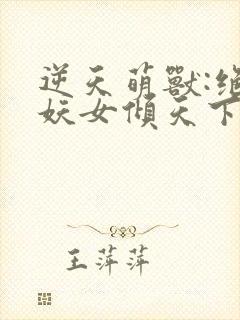 逆天萌獸:絕
妖女傾天下
王萍萍